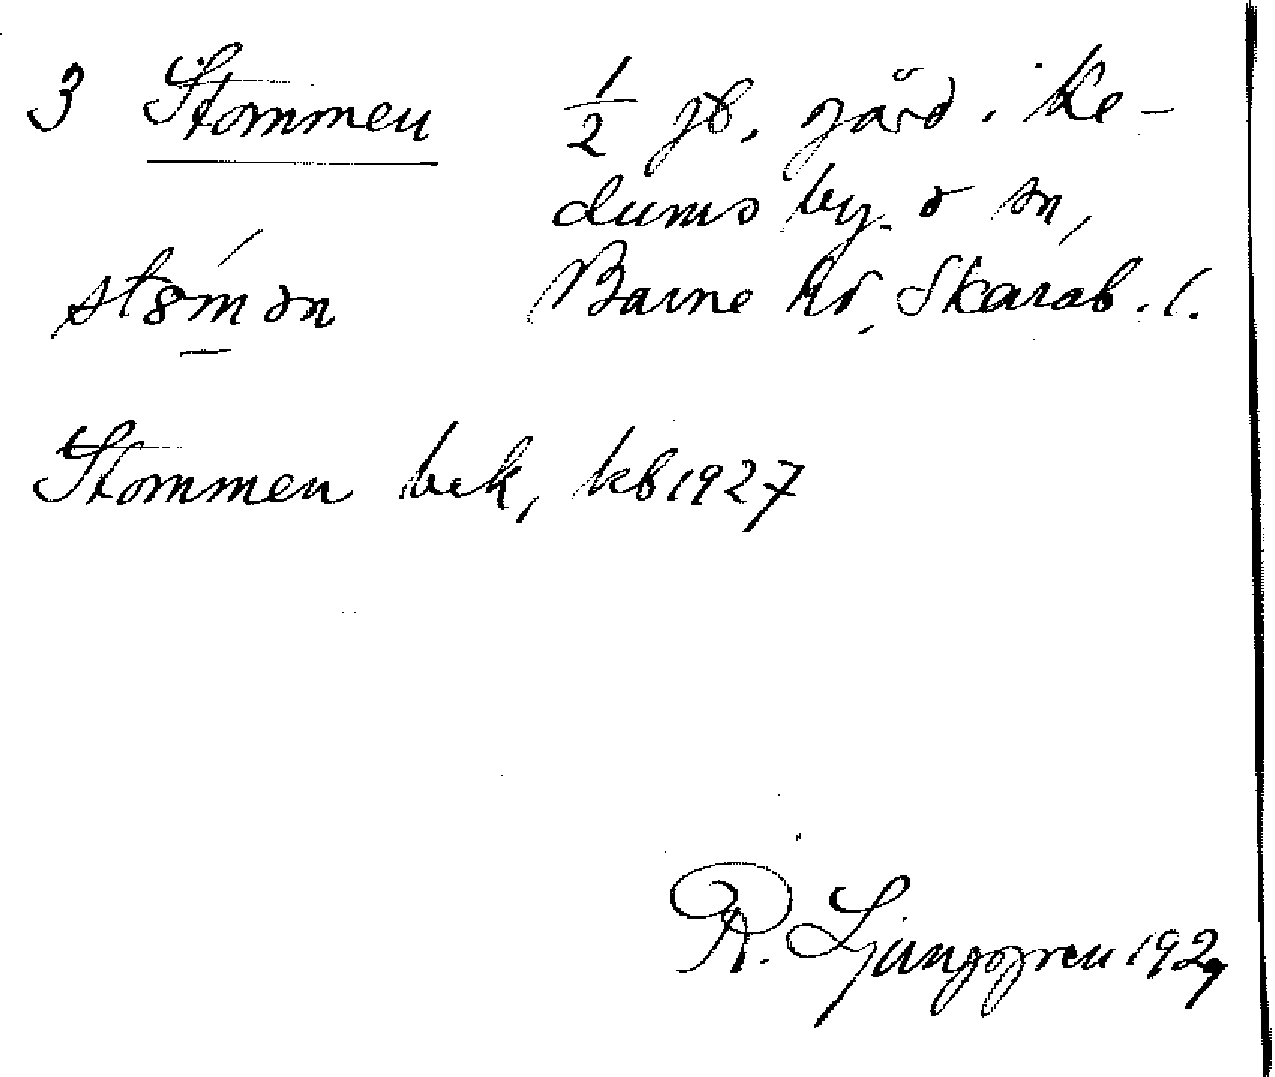 3 Stommen ½ gb. gård i Ke-
dums by o sn,
stømən Barne hd, Skarab. l.
Stommen bek, kb 1927
R. Ljunggren 1927